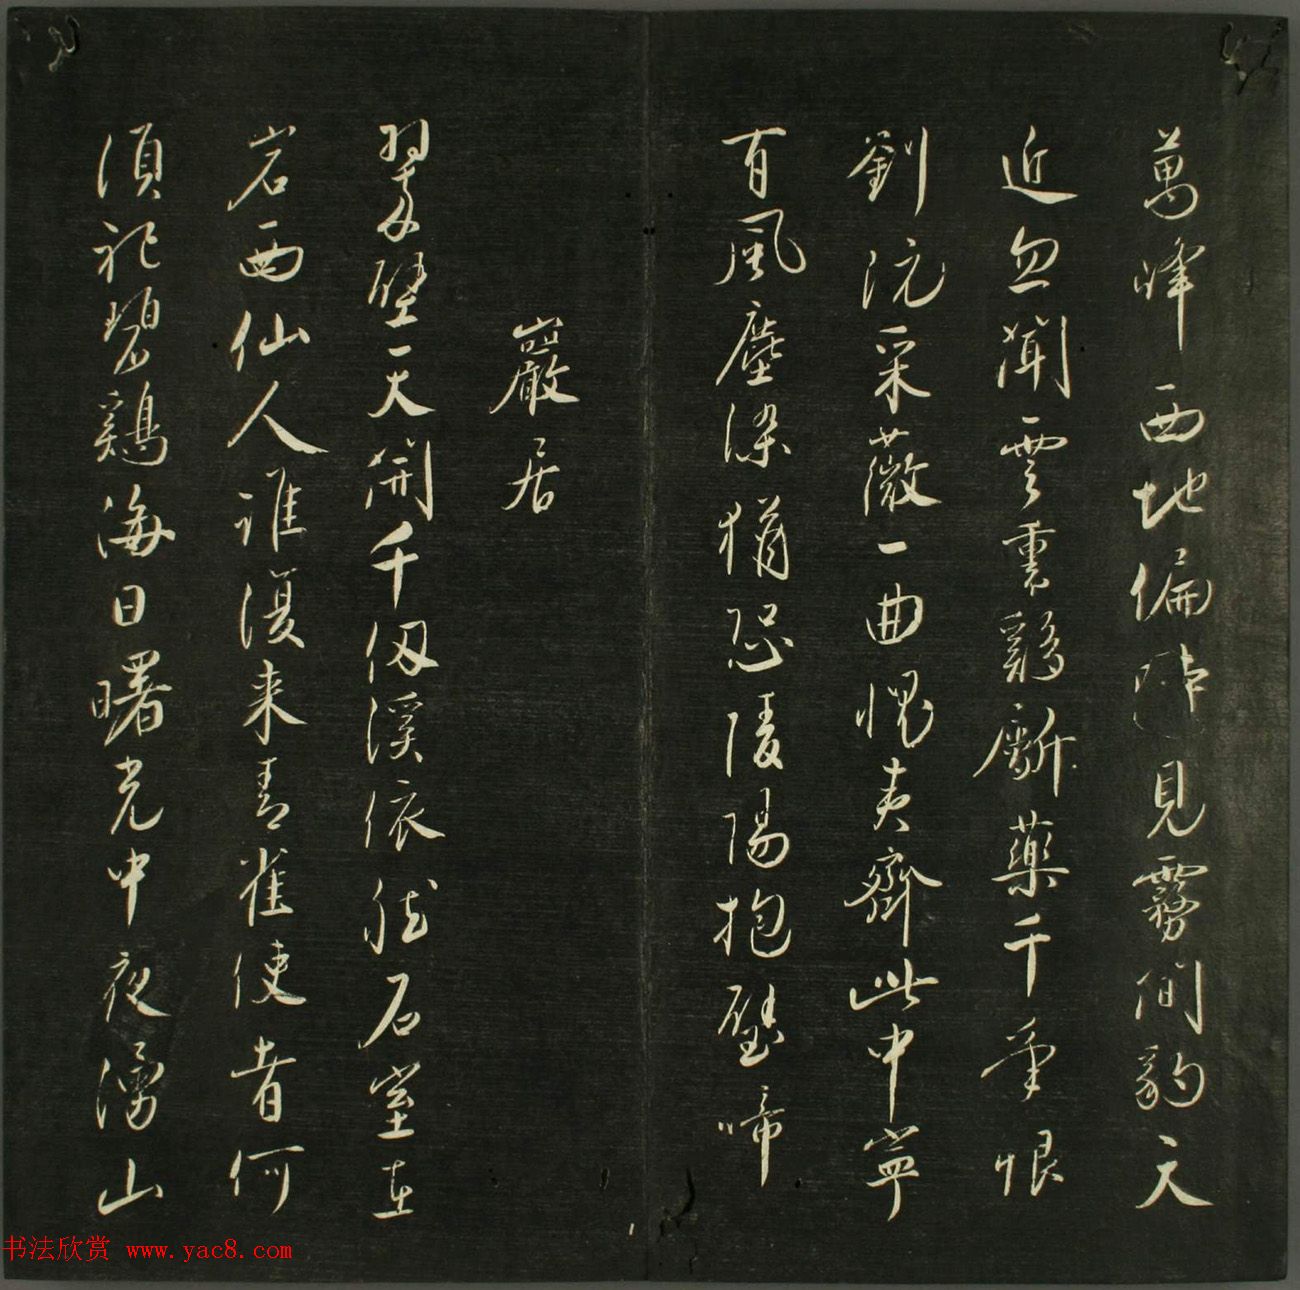 萬峰西地偏遠見霧間豹天
近忽聞雲裏鷄斸藥千年恨
劉沅采薇一曲愧夷齊此中寧
有風塵染猶恐陵陽抱璧啼
巖居
翠壁天開千仞溪依然石室在
岩西仙人誰復来青雀使者何
須祀碧鷄海日曙光中夜湧山
书法欣赏 www.yac8.com